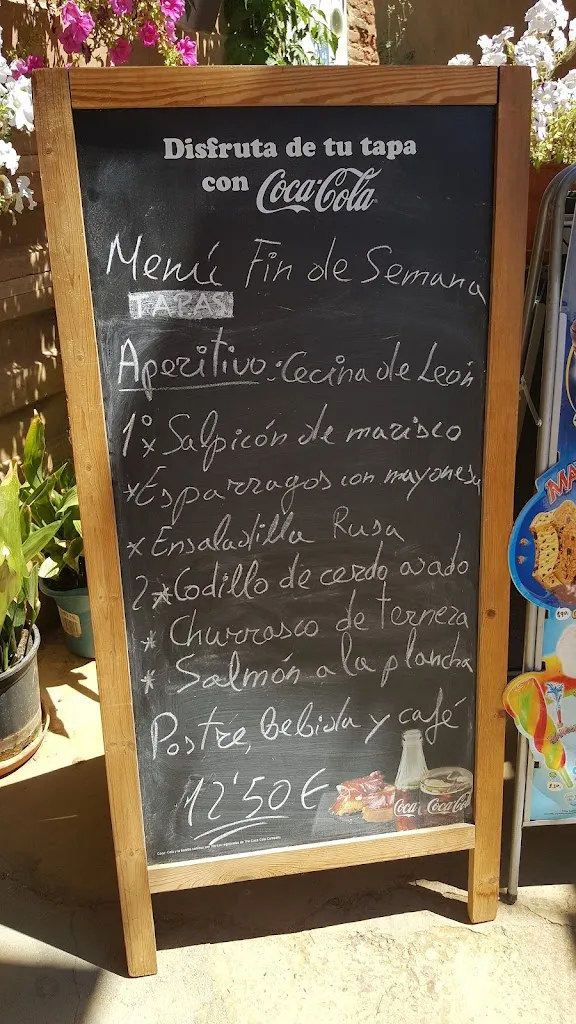 Disfruta de tu tapa
con Coca-Cola
Menú Fin de Semana
TAPAS
Aperitivo: Cecina de León
1º x Salpicón de marisco
x Esparragos con mayonesa
x Ensaladilla Rusa
2 * Codillo de cerdo asado
* Churrasco de ternera
* Salmón a la plancha
Postre, bebida y café
12'50 €
Coca-Cola